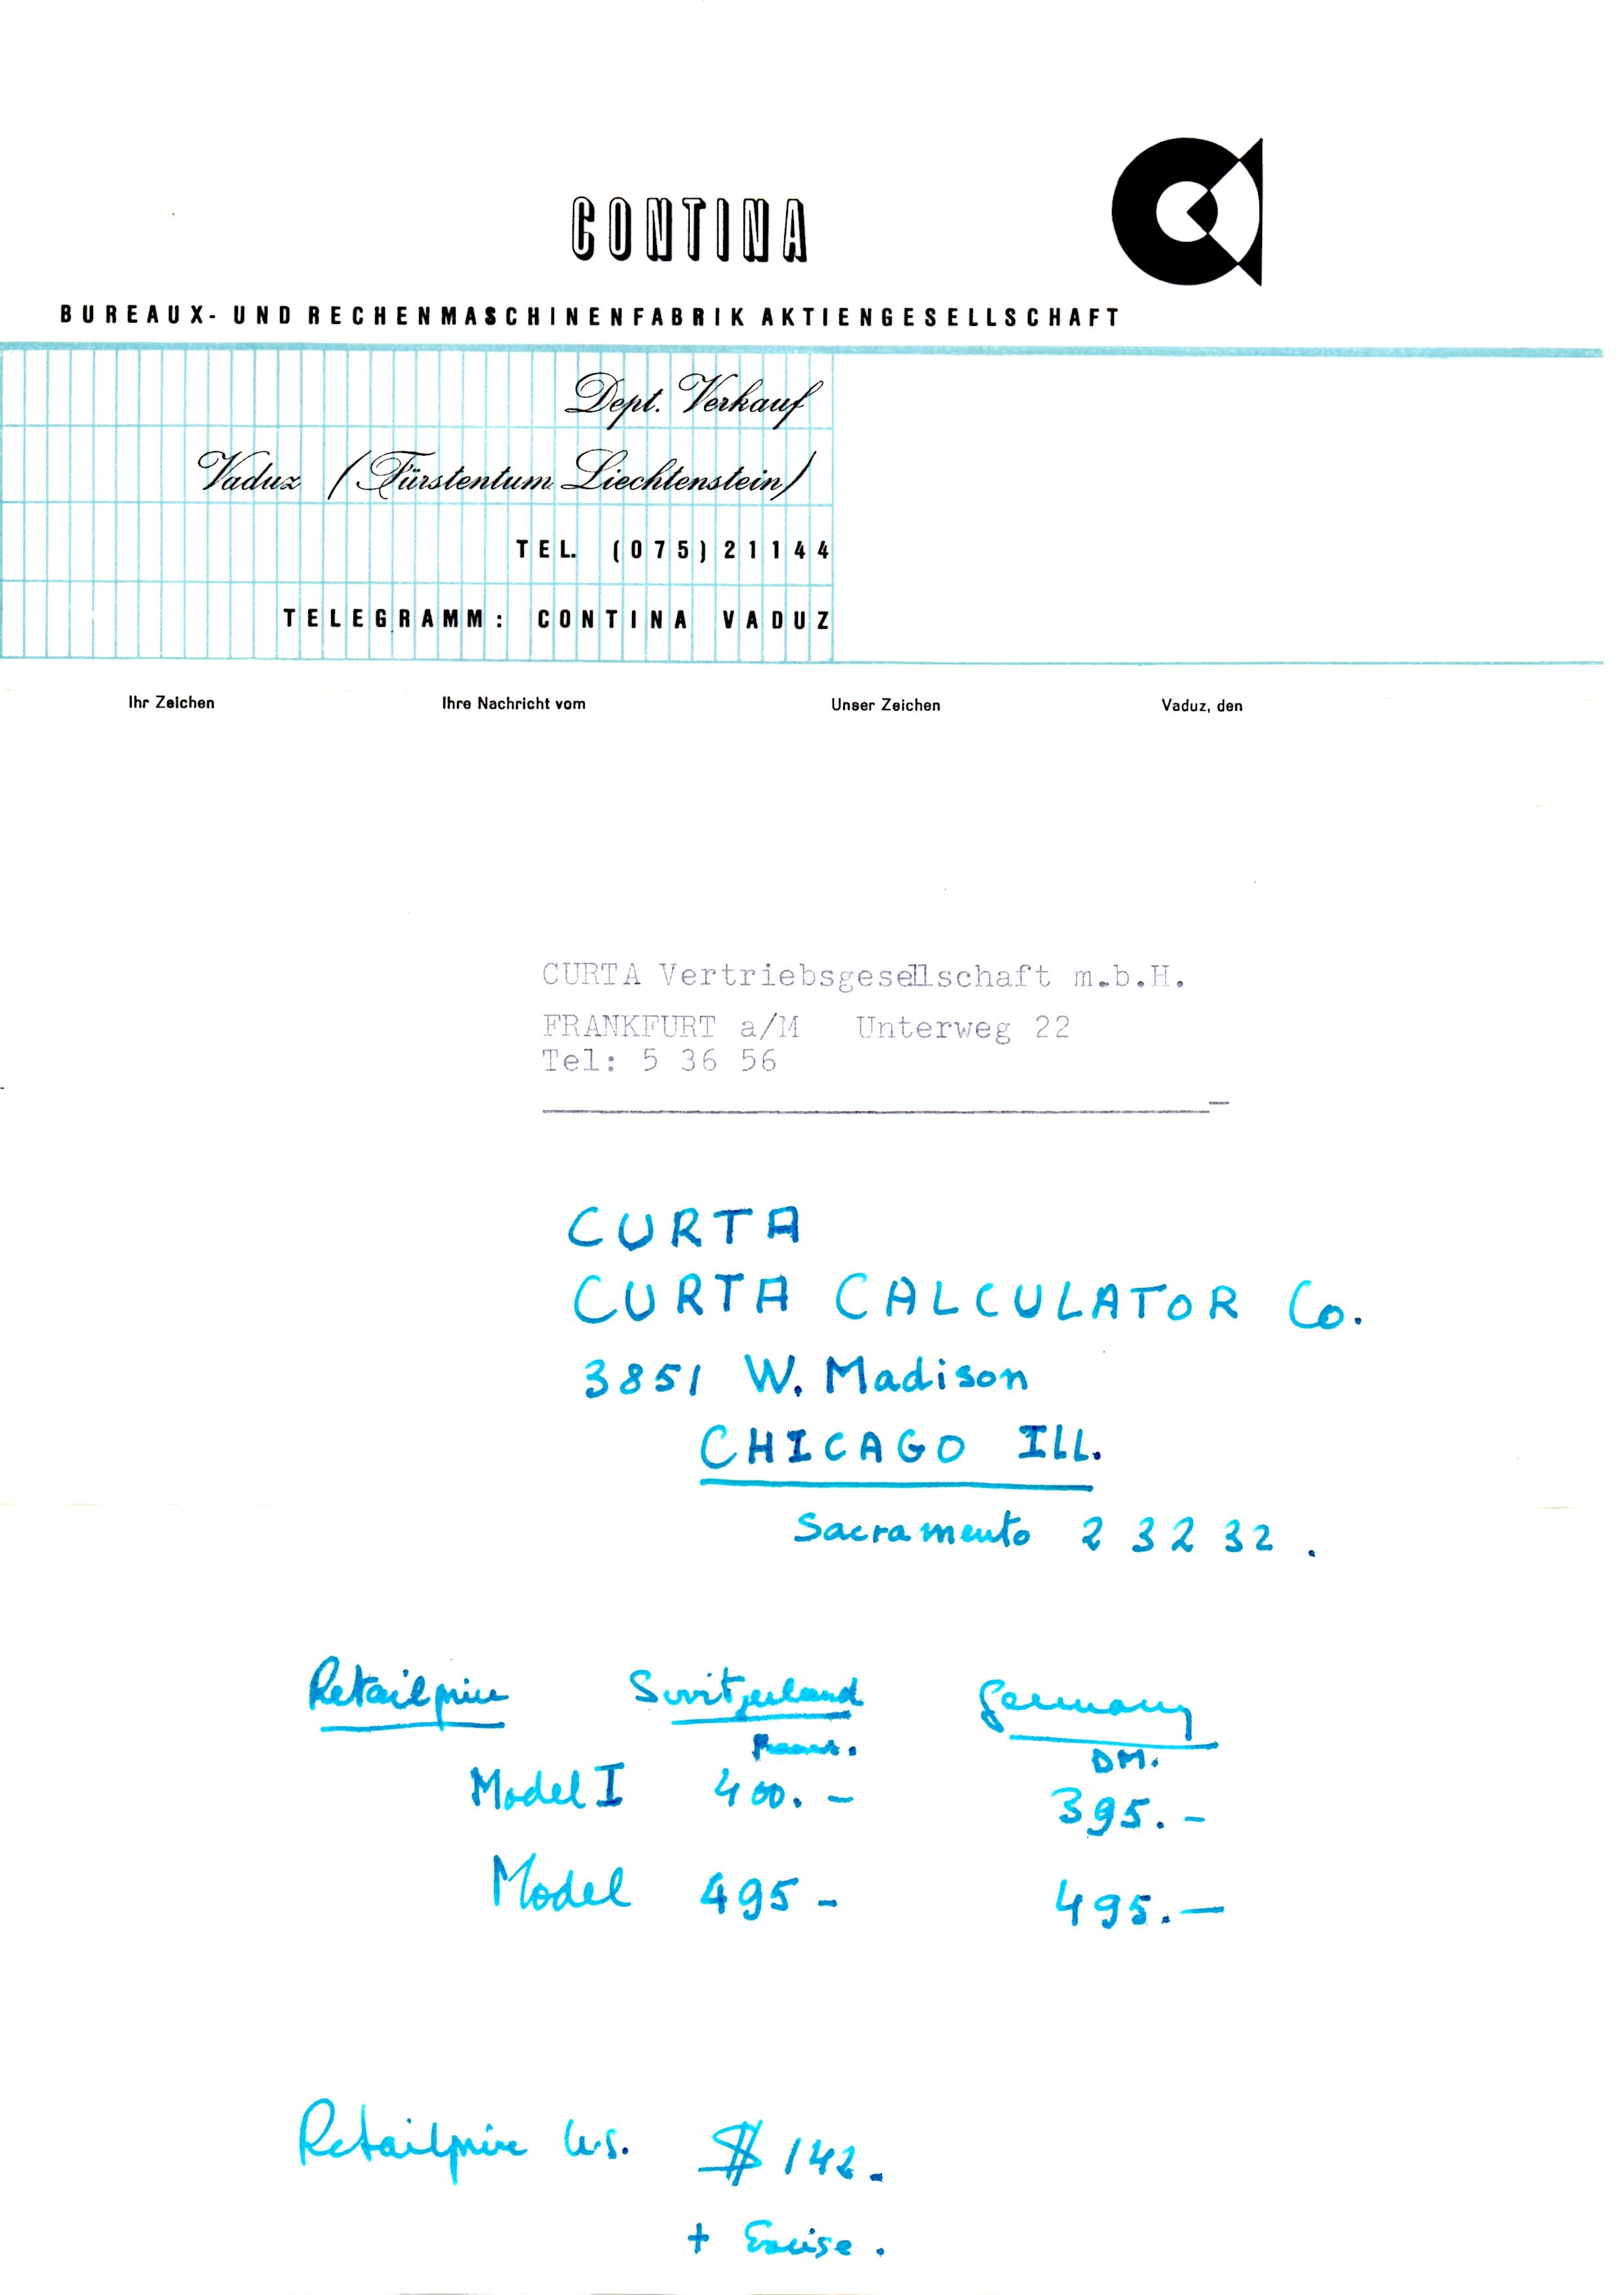 CONTINA
BUREAUX- UND RECHENMASCHINENFABRIK AKTIENGESELLSCHAFT
Dept. Verkauf
Vaduz (Fürstentum Liechtenstein)
TEL. (075) 21144
TELEGRAMM: CONTINA VADUZ
Ihr Zeichen Ihre Nachricht vom Unser Zeichen Vaduz, den
CURTA Vertriebsgesellschaft m.b.H.
FRANKFURT a/M Unterweg 22
Tel: 5 36 56
CURTA
CURTA CALCULATOR Co.
3851 W. Madison
CHICAGO ILL.
Sacramento 2 3 2 32.
Retailprice Switzerland Germany
DM.
Model I 400.- 395.-
Model 495- 495.-
Retailprice U.S. $ 142.
+ Excise.